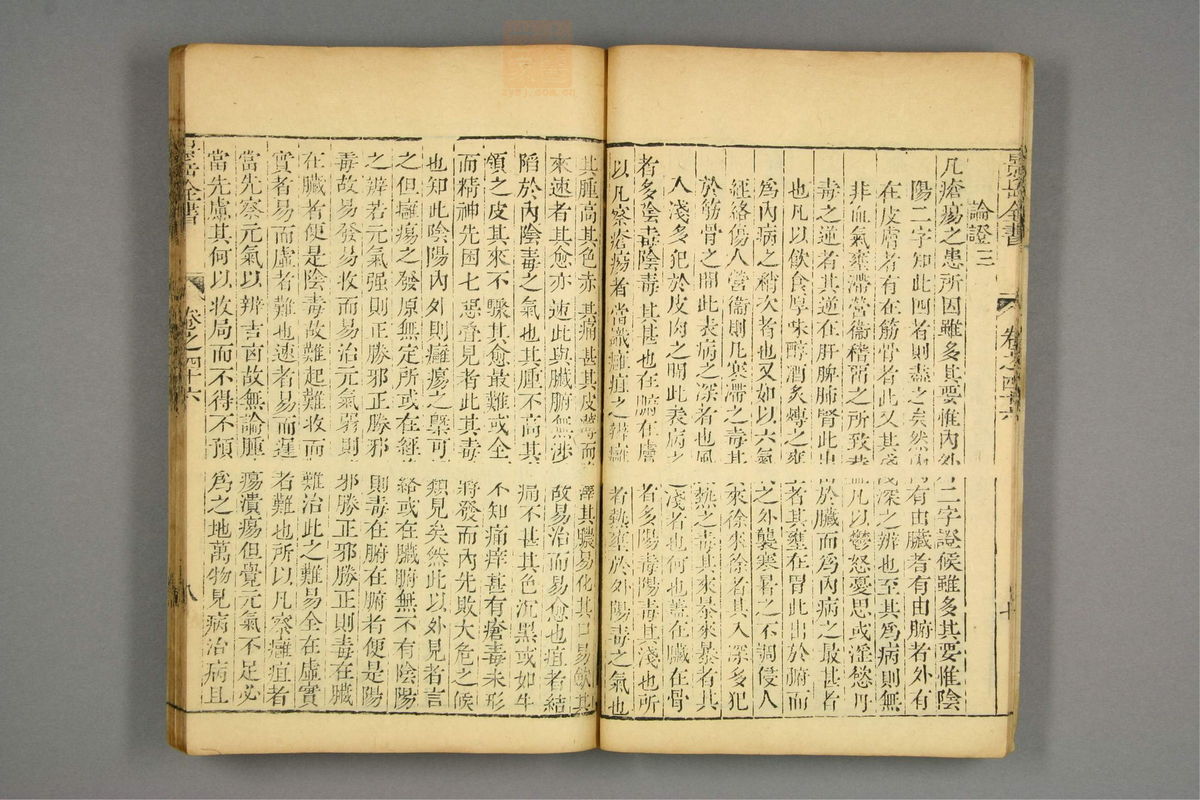 景岳全書 卷之四十六
論證三
凡瘡瘍之患所因雖多其要惟內外二字證候雖多其要惟陰
陽二字知此四者則盡之矣然內有由臟者有由腑者外有
在皮膚者有在筋骨者此又其淺深之辨也至其爲病則無
非血氣壅滯營衞稽留之所致蓋凡以鬱怒憂思或淫慾丹
毒之逆者其逆在肝脾肺腎此出於臟而爲內病之最甚者
也凡以飲食厚味醇酒炙煿之壅者其壅在胃此出於腑而
爲內病之稍次者也又如以六氣之外襲寒暑之不調侵入
經絡傷人營衞則凡寒滯之毒其來徐來徐者其入深多犯
於筋骨之間此表病之深者也風熱之毒其來暴來暴者其
入淺多犯於皮肉之間此表病之淺者也何也蓋在臟在骨
者多陰毒陰毒其甚也在腑在膚者多陽毒陽毒其淺也所
以凡察瘡瘍者當識癰疽之辨癰者熱壅於外陽毒之氣也
其腫高其色赤其痛甚其皮薄而澤其膿易化其口易斂其
來速者其愈亦速此與臟腑無涉故易治而易愈也疽者結
陷於內陰毒之氣也其腫不高其痛不甚其色沉黑或如牛
領之皮其來不驟其愈最難或全不知痛痒甚有瘡毒未形
而精神先困七惡疊見者此其毒將發而內先敗大危之候
也知此陰陽內外則癰瘍之槩可類見矣然此以外見者言
之但癰瘍之發原無定所或在經絡或在臟腑無不有陰陽
之辨若元氣强則正勝邪正勝邪則毒在腑在腑者便是陽
毒故易發易收而易治元氣弱則邪勝正邪勝正則毒在臟
在臟者便是陰毒故難起難收而難治此之難易全在虛實
實者易而虛者難也速者易而遲者難也所以凡察癰疽者
當先察元氣以辨吉凶故無論腫瘍潰瘍但覺元氣不足必
當先慮其何以收局而不得不預爲之地萬物見病治病且
景岳全書 卷之四十六 八